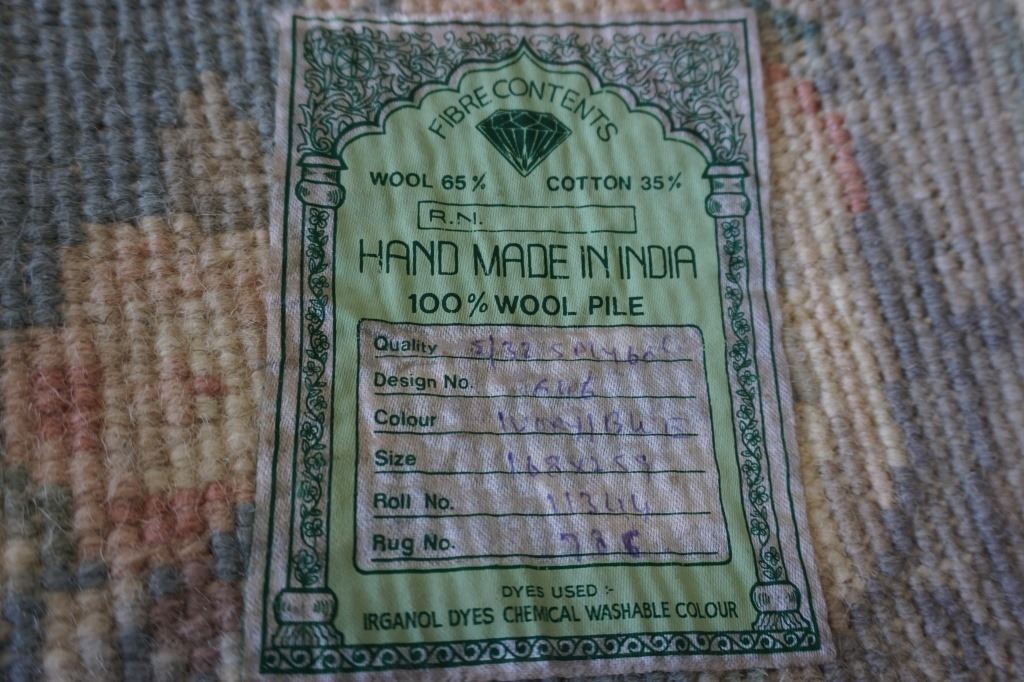 FIBRE CONTENTS
WOOL 65% COTTON 35%
R.N.
HAND MADE IN INDIA
100% WOOL PILE
Quality 5/32
Design No. 646
Colour
Size 168x259
Roll No. 11344
Rug No.
DYES USED :-
IRGANOL DYES CHEMICAL WASHABLE COLOUR